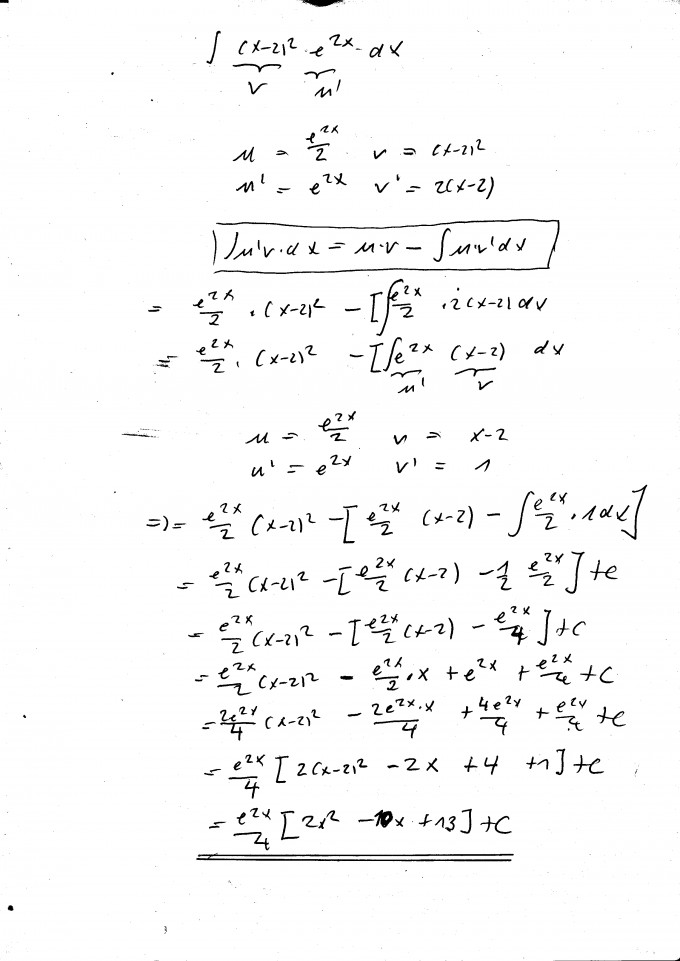 ∫ (x-2)² · e^{2x} · dx
v u'
u = e^{2x}/2 v = (x-2)²
u' = e^{2x} v' = 2(x-2)
∫u'v·dx = u·v − ∫u·v'dx
= e^{2x}/2 · (x-2)² − [∫e^{2x}/2 · 2(x-2) dv
= e^{2x}/2 · (x-2)² − [∫e^{2x} (x-2) dx
u' v
u = e^{2x}/2 v = x-2
u' = e^{2x} v' = 1
=> = e^{2x}/2 (x-2)² − [e^{2x}/2 (x-2) − ∫e^{2x}/2 · 1dx]
= e^{2x}/2 (x-2)² − [e^{2x}/2 (x-2) − 1/2 e^{2x}/2] +c
= e^{2x}/2 (x-2)² − [e^{2x}/2 (x-2) − e^{2x}/4] +c
= e^{2x}/2 (x-2)² − e^{2x}/2 · x + e^{2x} + e^{2x}/4 +c
= 2e^{2x}/4 (x-2)² − 2e^{2x}·x/4 + 4e^{2x}/4 + e^{2x}/4 +c
= e^{2x}/4 [2(x-2)² −2x +4 +1] +c
= e^{2x}/4 [2x² −10x +13] +c